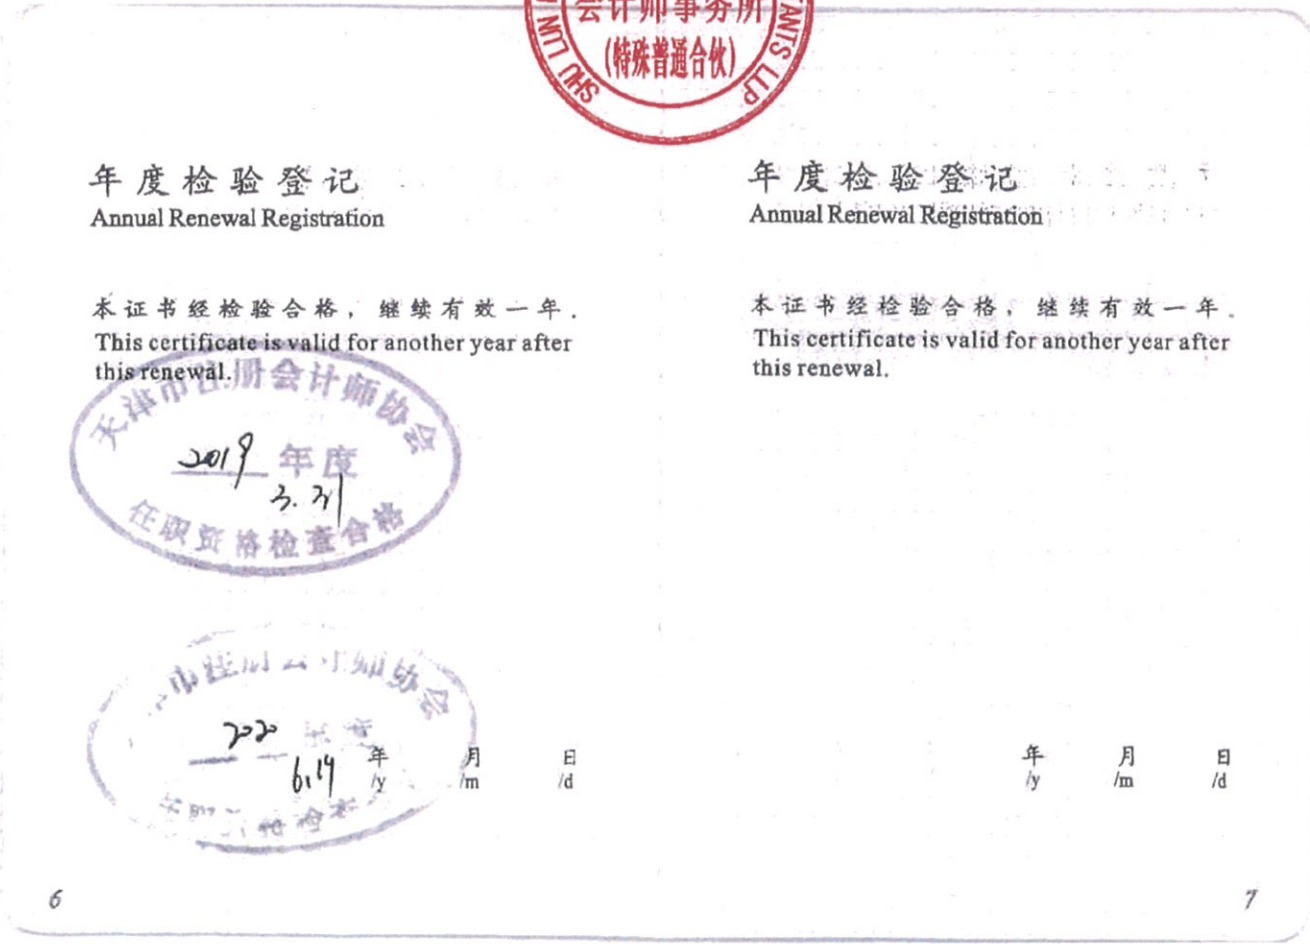 会计师事务所
(特殊普通合伙)
SHU LUN
ANTS LLP
年度检验登记
Annual Renewal Registration
本证书经检验合格，继续有效一年.
This certificate is valid for another year after
this renewal.
天津市注册会计师协会
2019 年度
3.31
任职资格检查合格
市注册会计师协会
2020
6.19
年 月 日
/y /m /d
6
年度检验登记
Annual Renewal Registration
本证书经检验合格，继续有效一年.
This certificate is valid for another year after
this renewal.
年 月 日
/y /m /d
7